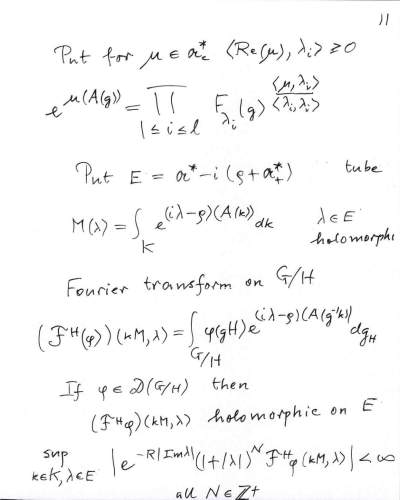 11
Put for μ ∈ 𝔞*_c ⟨Re(μ), λ_i⟩ ≥ 0
e^{μ(A(g))} = ∏_{1≤i≤l} F_{λ_i}(g)^{⟨μ,λ_i⟩/⟨λ_i,λ_i⟩}
Put E = 𝔞* − i(ρ + 𝔞*_+) tube
M(λ) = ∫_K e^{(iλ−ρ)(A(k))} dk λ ∈ E
holomorphi
Fourier transform on G/H
(ℱ^H(φ))(kM,λ) = ∫_{G/H} φ(gH) e^{(iλ−ρ)(A(g⁻¹k))} dg_H
If φ ∈ 𝒟(G/H) then
(ℱ^H φ)(kM,λ) holomorphic on E
sup_{k∈K, λ∈E} |e^{−R|Imλ|}(1+|λ|)^N ℱ^H φ(kM,λ)| < ∞
all N ∈ ℤ⁺